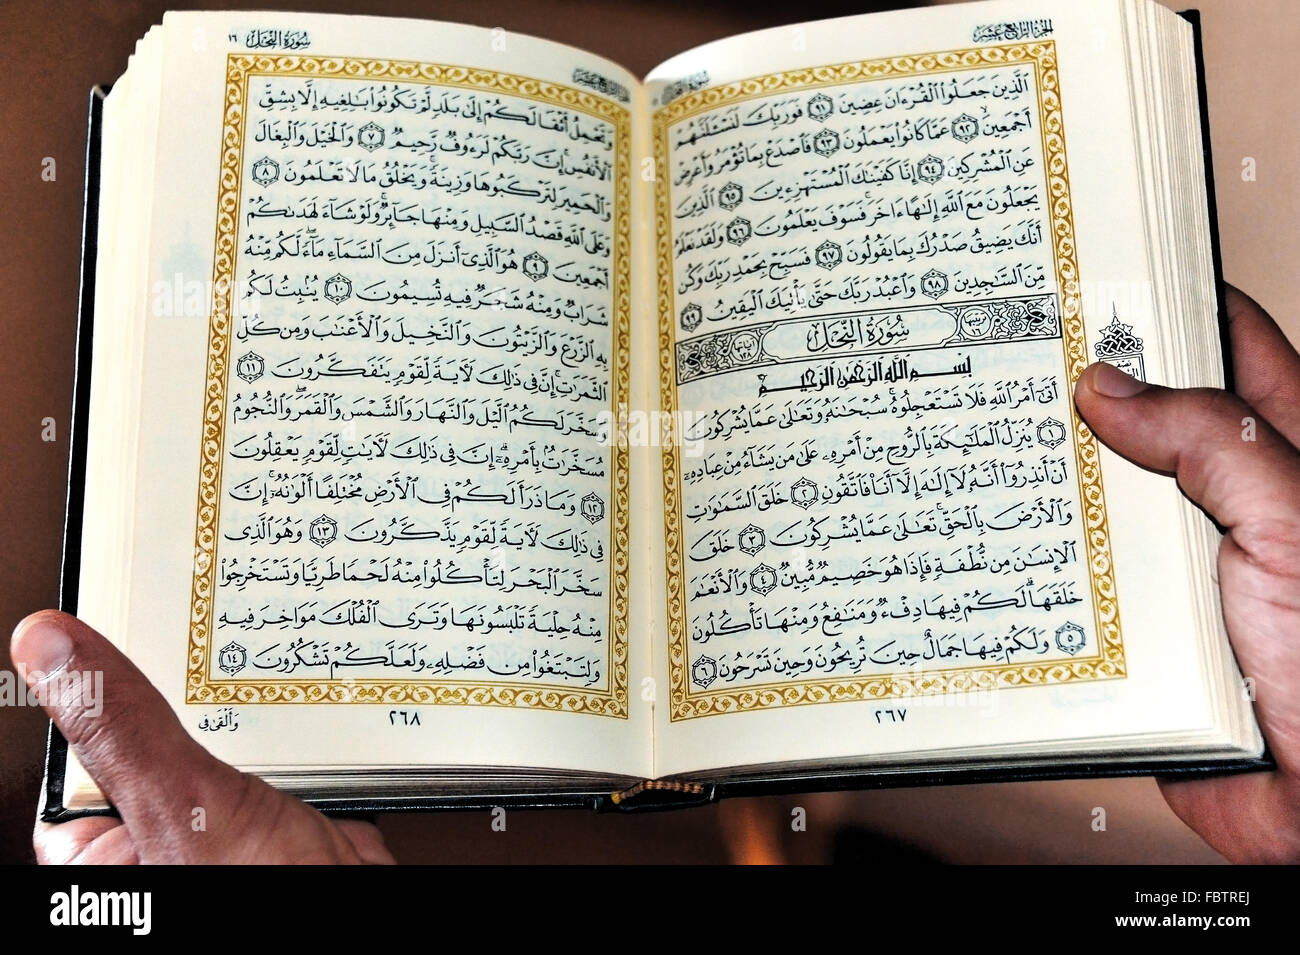 الجزء الرابع عشر
الَّذِينَ جَعَلُوا الْقُرْءَانَ عِضِينَ ٩١ فَوَرَبِّكَ لَنَسْـَٔلَنَّهُمْ
أَجْمَعِينَ ٩٢ عَمَّا كَانُوا يَعْمَلُونَ ٩٣ فَاصْدَعْ بِمَا تُؤْمَرُ وَأَعْرِضْ
عَنِ الْمُشْرِكِينَ ٩٤ إِنَّا كَفَيْنَٰكَ الْمُسْتَهْزِءِينَ ٩٥ الَّذِينَ
يَجْعَلُونَ مَعَ اللَّهِ إِلَٰهًا ءَاخَرَ فَسَوْفَ يَعْلَمُونَ ٩٦ وَلَقَدْ نَعْلَمُ
أَنَّكَ يَضِيقُ صَدْرُكَ بِمَا يَقُولُونَ ٩٧ فَسَبِّحْ بِحَمْدِ رَبِّكَ وَكُن
مِّنَ السَّٰجِدِينَ ٩٨ وَاعْبُدْ رَبَّكَ حَتَّىٰ يَأْتِيَكَ الْيَقِينُ ٩٩
سُورَةُ النَّحْلِ
بِسْمِ اللَّهِ الرَّحْمَٰنِ الرَّحِيمِ
أَتَىٰ أَمْرُ اللَّهِ فَلَا تَسْتَعْجِلُوهُ سُبْحَٰنَهُ وَتَعَٰلَىٰ عَمَّا يُشْرِكُونَ
١ يُنَزِّلُ الْمَلَٰئِكَةَ بِالرُّوحِ مِنْ أَمْرِهِ عَلَىٰ مَن يَشَاءُ مِنْ عِبَادِهِ
أَنْ أَنذِرُوا أَنَّهُ لَا إِلَٰهَ إِلَّا أَنَا فَاتَّقُونِ ٢ خَلَقَ السَّمَٰوَٰتِ
وَالْأَرْضَ بِالْحَقِّ تَعَٰلَىٰ عَمَّا يُشْرِكُونَ ٣ خَلَقَ
الْإِنسَٰنَ مِن نُّطْفَةٍ فَإِذَا هُوَ خَصِيمٌ مُّبِينٌ ٤ وَالْأَنْعَٰمَ
خَلَقَهَا لَكُمْ فِيهَا دِفْءٌ وَمَنَٰفِعُ وَمِنْهَا تَأْكُلُونَ
٥ وَلَكُمْ فِيهَا جَمَالٌ حِينَ تُرِيحُونَ وَحِينَ تَسْرَحُونَ ٦
٢٦٧
سُورَةُ النَّحْلِ ١٦
وَتَحْمِلُ أَثْقَالَكُمْ إِلَىٰ بَلَدٍ لَّمْ تَكُونُوا بَٰلِغِيهِ إِلَّا بِشِقِّ
الْأَنفُسِ إِنَّ رَبَّكُمْ لَرَءُوفٌ رَّحِيمٌ ٧ وَالْخَيْلَ وَالْبِغَالَ
وَالْحَمِيرَ لِتَرْكَبُوهَا وَزِينَةً وَيَخْلُقُ مَا لَا تَعْلَمُونَ ٨
وَعَلَى اللَّهِ قَصْدُ السَّبِيلِ وَمِنْهَا جَائِرٌ وَلَوْ شَاءَ لَهَدَىٰكُمْ
أَجْمَعِينَ ٩ هُوَ الَّذِي أَنزَلَ مِنَ السَّمَاءِ مَاءً لَّكُم مِّنْهُ
شَرَابٌ وَمِنْهُ شَجَرٌ فِيهِ تُسِيمُونَ ١٠ يُنبِتُ لَكُم
بِهِ الزَّرْعَ وَالزَّيْتُونَ وَالنَّخِيلَ وَالْأَعْنَٰبَ وَمِن كُلِّ
الثَّمَرَٰتِ إِنَّ فِي ذَٰلِكَ لَءَايَةً لِّقَوْمٍ يَتَفَكَّرُونَ ١١
وَسَخَّرَ لَكُمُ اللَّيْلَ وَالنَّهَارَ وَالشَّمْسَ وَالْقَمَرَ وَالنُّجُومُ
مُسَخَّرَٰتٌ بِأَمْرِهِ إِنَّ فِي ذَٰلِكَ لَءَايَٰتٍ لِّقَوْمٍ يَعْقِلُونَ
١٢ وَمَا ذَرَأَ لَكُمْ فِي الْأَرْضِ مُخْتَلِفًا أَلْوَٰنُهُ إِنَّ
فِي ذَٰلِكَ لَءَايَةً لِّقَوْمٍ يَذَّكَّرُونَ ١٣ وَهُوَ الَّذِي
سَخَّرَ الْبَحْرَ لِتَأْكُلُوا مِنْهُ لَحْمًا طَرِيًّا وَتَسْتَخْرِجُوا
مِنْهُ حِلْيَةً تَلْبَسُونَهَا وَتَرَى الْفُلْكَ مَوَاخِرَ فِيهِ
وَلِتَبْتَغُوا مِن فَضْلِهِ وَلَعَلَّكُمْ تَشْكُرُونَ ١٤
٢٦٨
وَأَلْقَىٰ فِي
alamy stock photo
FBTREJ
www.alamy.com